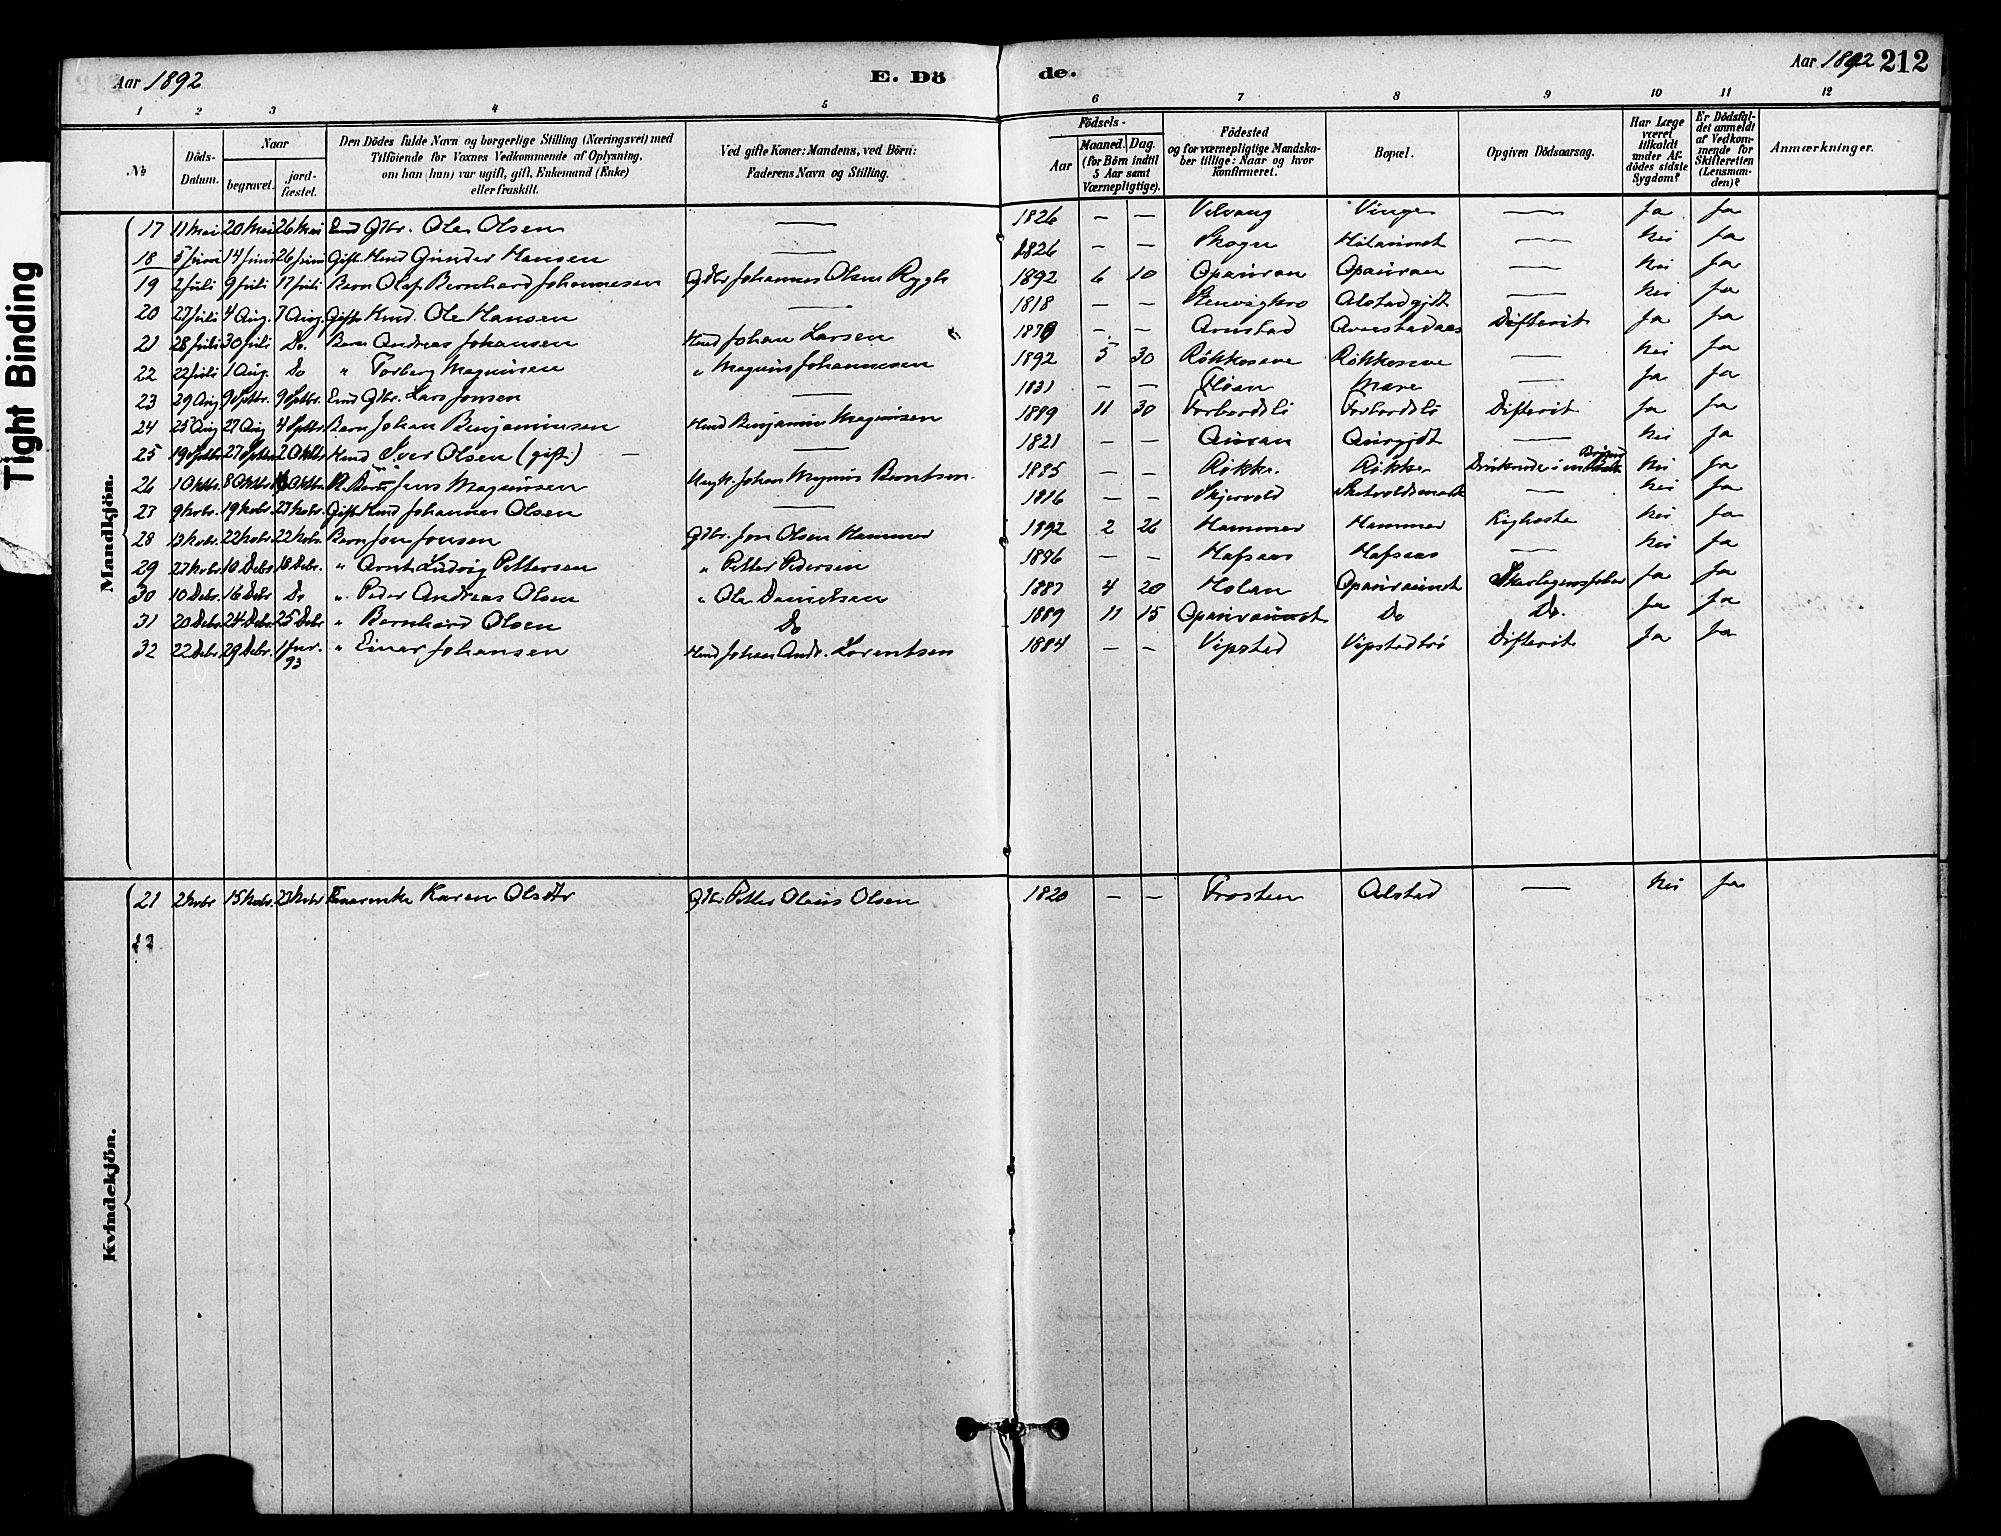 Tight Binding
Aar 1892
E. Dö
de.
Aar 1892 212
1 2 3 4 5 6 7 8 9 10 11 12
№
Döds-Datum.
Naar
begravet.
jord-fæstet.
Den Dödes fulde Navn og borgerlige Stilling (Næringsvei) med Tilföiende for Voxnes Vedkommende af Oplysning, om han (hun) var ugift, gift, Enkemand (Enke) eller fraskilt.
Ved gifte Koner: Mandens, ved Börn: Faderens Navn og Stilling.
Födsels-
Aar
Maaned. Dag.
(for Börn indtil 5 Aar samt Værnepligtige).
Födested og for værnepligtige Mandskaber tillige: Naar og hvor Konfirmeret.
Bopæl.
Opgiven Dödsaarsag.
Har Læge været tilkaldt under Afdödes sidste Sygdom?
Er Dödsfaldet anmeldt af Vedkommende for Skifteretten (Lensmanden)?
Anmærkninger.
Mandkjön.
17 11 Mai 20 Mai 26 Mai Gbr. Ole Olsen — 1826 — — Velvang Vinge — Ja Ja
18 5 Juni 14 Juni 26 Juni Gift Hmd Gunder Hansen — 1826 — — Skogn — Nei Ja
19 2 Juli 9 Juli 17 Juli Barn Olaf Bernhard Johannesen Gbr Johannes Olsen Rygh 1892 6 10 Opauran Opauran — Nei Ja
20 27 Juli 4 Aug. 7 Aug. Gift Hmd. Ole Hansen — 1818 — — Alstadgjdt — Nei Ja
21 28 Juli 30 Juli Do. Barn Andreas Johansen Hmd Johan Larsen 1879 — — Arnstad Arnstadaas Difterit Ja Ja
22 22 Juli 1 Aug. Do " Torberg Magnusen " Magnus Johannesen 1892 5 30 Røkkesave Røkkesave — Nei Ja
23 29 Aug 9 Septbr. 9 Septbr. Gbr. Lars Jonsen — 1831 — — Floan Mære — Ja Ja
24 25 Aug 27 Aug 4 Septbr. Barn Johan Benjaminsen Hmd Benjamin Magnusen 1889 11 30 Forbordsli Forbordsli Difterit Ja Ja
25 19 Septbr 27 Septbr 2 Oktbr Hmd Iver Olsen (gift) — 1821 — — Auran — Nei Ja
26 1 Oktbr. 8 Oktbr. Oktbr. Jens Magnusen Johan Magnus Berntsen 1885 — — Røkke. Røkke Druknede i en Nei Ja
27 9 Nobr. 19 Nobr. 27 Nobr. Gift Hmd Johannes Olsen — 1816 — — Skjervold — Nei Ja
28 13 Nobr. 22 Nobr. 22 Nobr. Barn Jon Jonsen Gbr. Jon Olsen Hammer 1892 2 26 Hammer Hammer Kighoste Nei Ja
29 27 Nobr 10 Debr 18 Debr. " Arnt Ludvig Pettersen " Petter Pedersen 1886 — — Hafsaas Hafsaas — Nei Ja
30 10 Debr. 16 Debr Do " Peder Andreas Olsen " Ole Danielsen 1887 4 20 Holan Skarlagensfeber Ja Ja
31 20 Debr 24 Debr. 25 Debr " Bernhard Olsen Do 1889 11 15 Do Do. Ja Ja
32 22 Debr. 29 Debr. 1 Jnr. 93 " Einar Johansen Hmd Johan Andr. Lorentsen 1884 — — Vipstad Vipstadtrø Difterit Ja Ja
Kvindekjön.
21 2 Nobr 15 Nobr. 23 Nobr Karen Olsdtr Gbr. Petter Olaus Olsen 1820 — — Frosten Alstad — Nei Ja
22